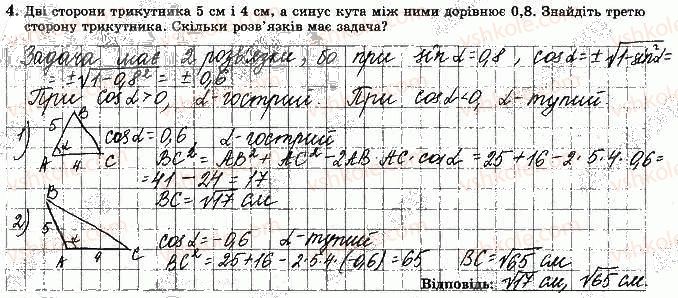 4. Дві сторони трикутника 5 см і 4 см, а синус кута між ними дорівнює 0,8. Знайдіть третю
сторону трикутника. Скільки розв'язків має задача?
Задача має 2 розв'язки, бо при sin α = 0,8, cos α = ±√1-sin²α =
= ±√1-0,8² = ± 0,6
При cos α > 0, α - гострий. При cos α < 0, α - тупий.
1) B
5
α
A 4 C
cos α = 0,6, α - гострий
BC² = AB² + AC² - 2AB·AC·cos α = 25+16-2·5·4·0,6 =
= 41 - 24 = 17
BC = √17 см
2) B
5
α
A 4 C
cos α = -0,6 α - тупий
BC² = 25+16-2·5·4·(-0,6) = 65 BC = √65 см
Відповідь: √17 см, √65 см.